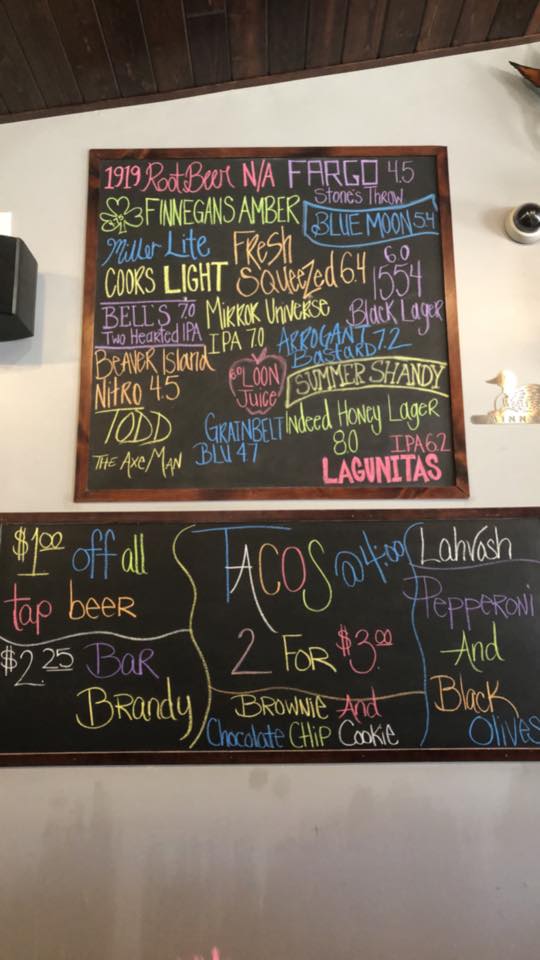 1919 Root Beer N/A
FARGO 4.5
Stone's Throw
FINNEGANS AMBER
BLUE MOON 5.4
Miller Lite
FResH
SQueeZed 6.4
6.0
1554
Black Lager
COORS LIGHT
BELL'S 7.0
Two Hearted IPA
MiRROR UNiveRse
IPA 7.0
ARROGANT
Bastard 7.2
BeAVeR Island
NiTRO 4.5
6.0 LOON
Juice
SUMMER SHANDY
TODD
THE Axe MAN
GRAINBELT
BLU 47
Indeed Honey Lager
8.0
IPA 6.2
LAGUNITAS
$1.00 off all
tap beer
$2.25 BAR
BRANDY
TACOS @4:00
2 FOR $3.00
BROWNIE And
Chocolate CHip Cookie
Lahvosh
Pepperoni
And
Black
Olives
INN